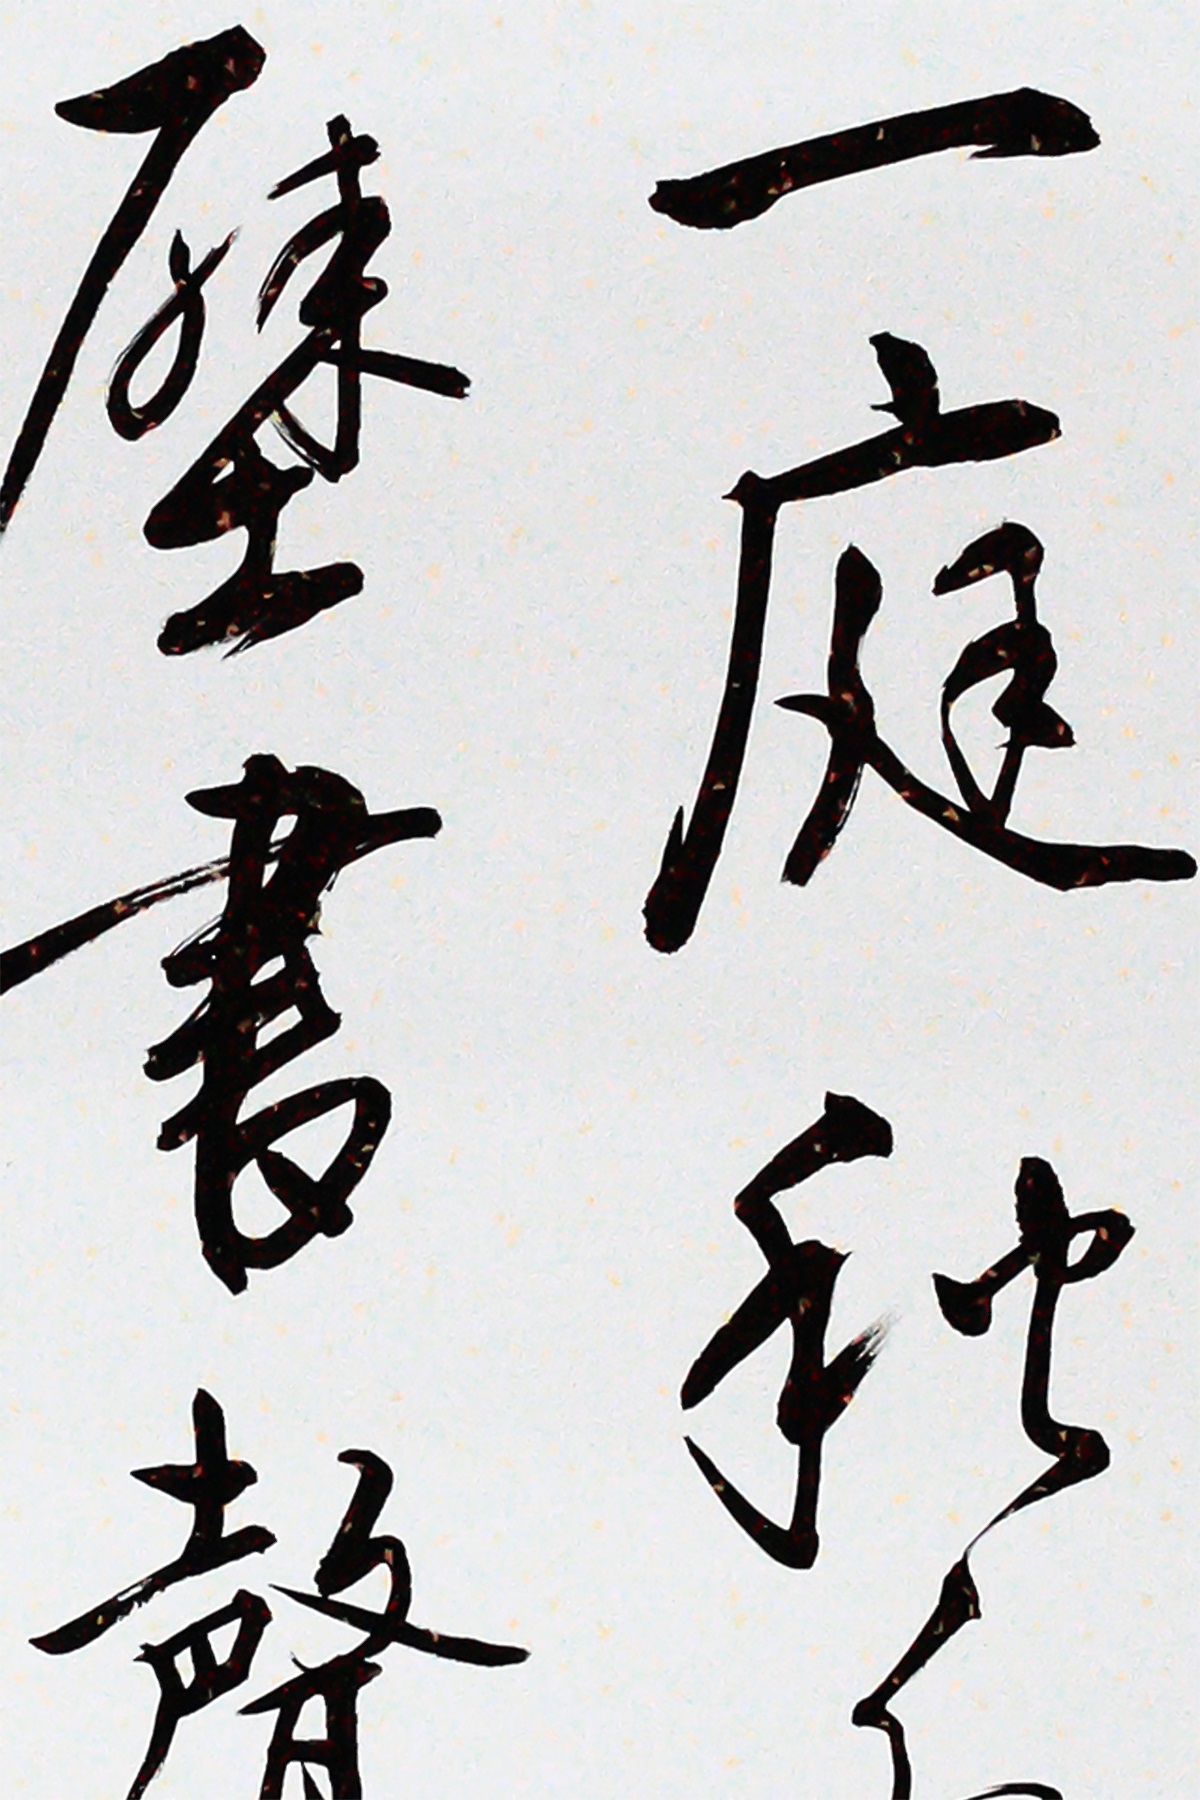 一庭秋
壁書聲